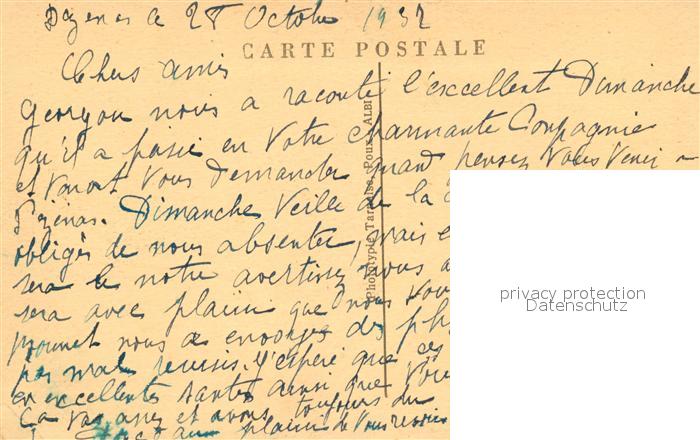 Pézenas le 28 Octobre 1932
CARTE POSTALE
Chers amis
Georgou nous a raconté l'excellent Dimanche
qu'il a passé en votre charmante Compagnie
et vous demander quand pensez vous venir a
Pézenas. Dimanche Veille de la
obligés de nous absenter, mais
sera le notre avertissez nous
sera avec plaisir que nous vous
promet nous a envoyé des
pas mal reussis. J'espère que ces
en excellentes santés ainsi que
Ca va assez et avons toujours du
plaisir de vous revoir
Phototypie Tarnaise, Poux, ALBI
privacy protection
Datenschutz